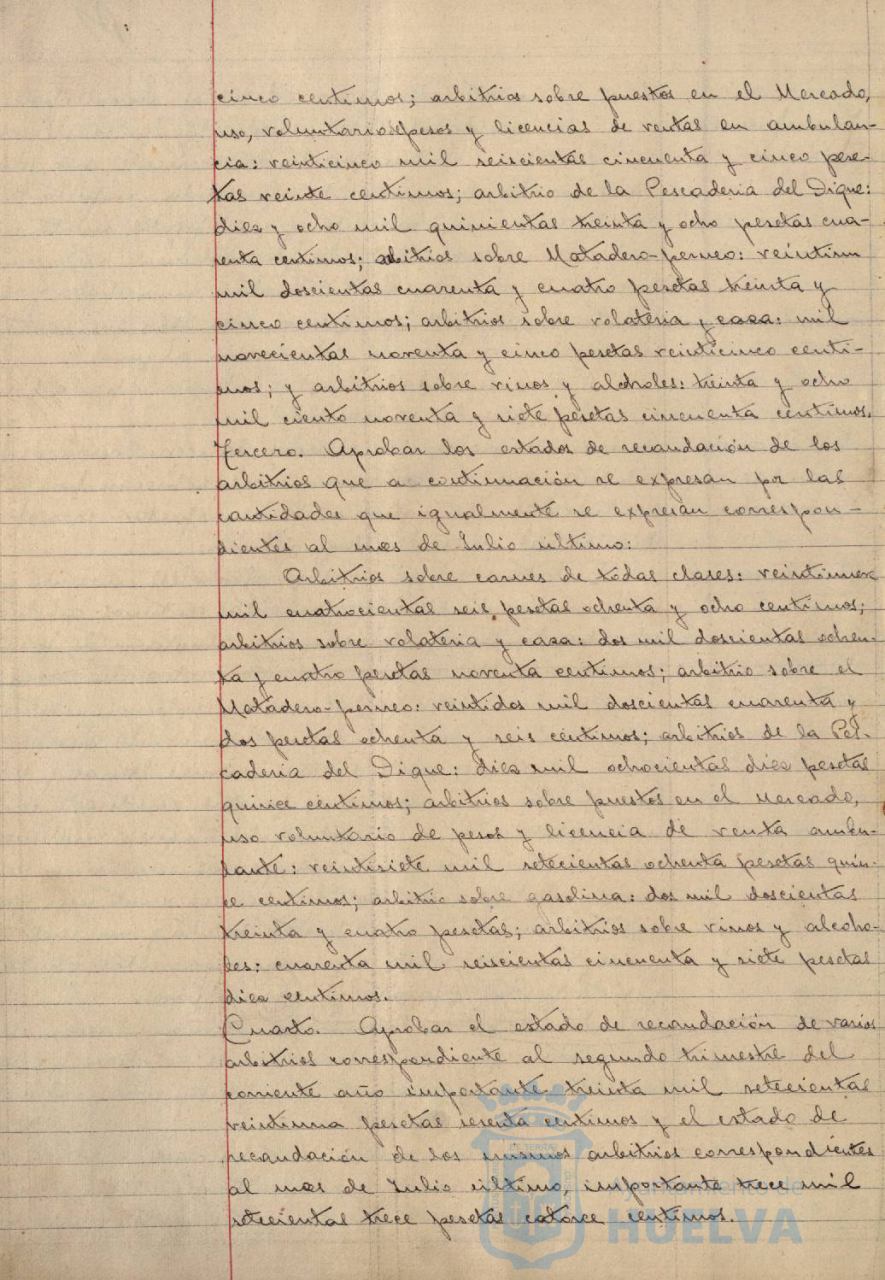 cinco centimos; arbitrios sobre puestos en el Mercado,
uso, voluntario pesos y licencias de ventas en ambulan-
cia: veinticinco mil seiscientas cincuenta y cinco pese-
tas veinte centimos; arbitrio de la Pescaderia del Dique:
diez y ocho mil quinientas treinta y ocho pesetas cua-
renta centimos; arbitrios sobre Matadero-perneo: veintiun
mil doscientas cuarenta y cuatro pesetas treinta y
cinco centimos; arbitrios sobre volateria y caza: mil
novecientas noventa y cinco pesetas veinticinco centi-
mos; y arbitrios sobre vinos y alcholes: treinta y ocho
mil ciento noventa y siete pesetas cincuenta centimos.
Tercero. Aprobar los estados de recaudación de los
arbitrios que a continuación se expresan por las
cantidades que igualmente se expresan correspon-
dientes al mes de Julio último:
Arbitrios sobre carnes de todas clases:
mil cuatrocientas seis pesetas ochenta y ocho centimos;
arbitrios sobre volateria y caza: dos mil doscientas ochen-
ta y cuatro pesetas noventa centimos; arbitrio sobre el
Matadero-perneo: veintidos mil doscientas cuarenta y
dos pesetas ochenta y seis centimos; arbitrios de la Pes-
caderia del Dique: diez mil ochocientas diez pesetas
quince centimos; arbitrios sobre puestos en el Mercado,
uso voluntario de pesos y licencia de venta ambu-
lante: veintisiete mil setecientas ochenta pesetas quin-
ce centimos; arbitrio sobre gasolina: dos mil doscientas
treinta y cuatro pesetas; arbitrios sobre vinos y alcoho-
les: cuarenta mil seiscientas cincuenta y siete pesetas
diez centimos.
Cuarto. Aprobar el estado de recaudación de varios
arbitrios correspondiente al segundo trimestre del
corriente año importante treinta mil setecientas
veintiuna pesetas sesenta centimos y el estado de
recaudación de los mismos arbitrios correspondientes
al mes de Julio último, importante trece mil
setecientas trece pesetas catorce centimos.
Ayuntamiento de
HUELVA